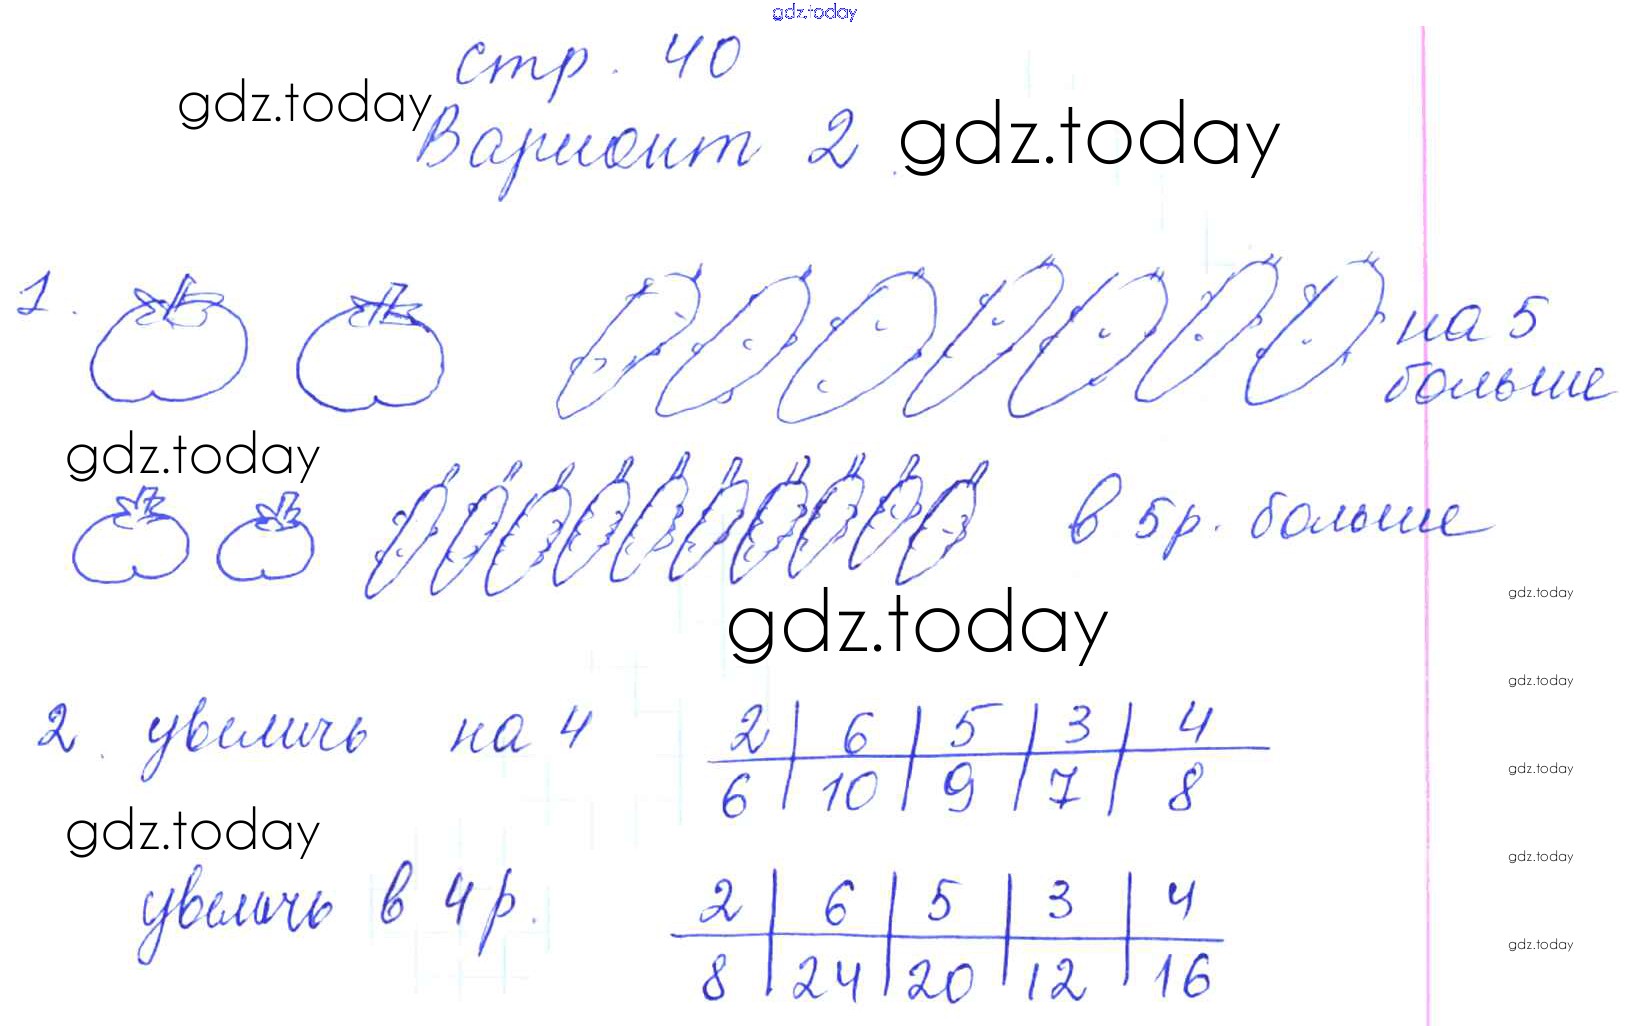 gdz.today
стр. 40
gdz.today
Вариант 2
gdz.today
1.
на 5
больше
gdz.today
в 5 р. больше
gdz.today
gdz.today
gdz.today
2. увеличь на 4
2 | 6 | 5 | 3 | 4
6 | 10 | 9 | 7 | 8
gdz.today
gdz.today
gdz.today
увеличь в 4 р.
2 | 6 | 5 | 3 | 4
8 | 24 | 20 | 12 | 16
gdz.today